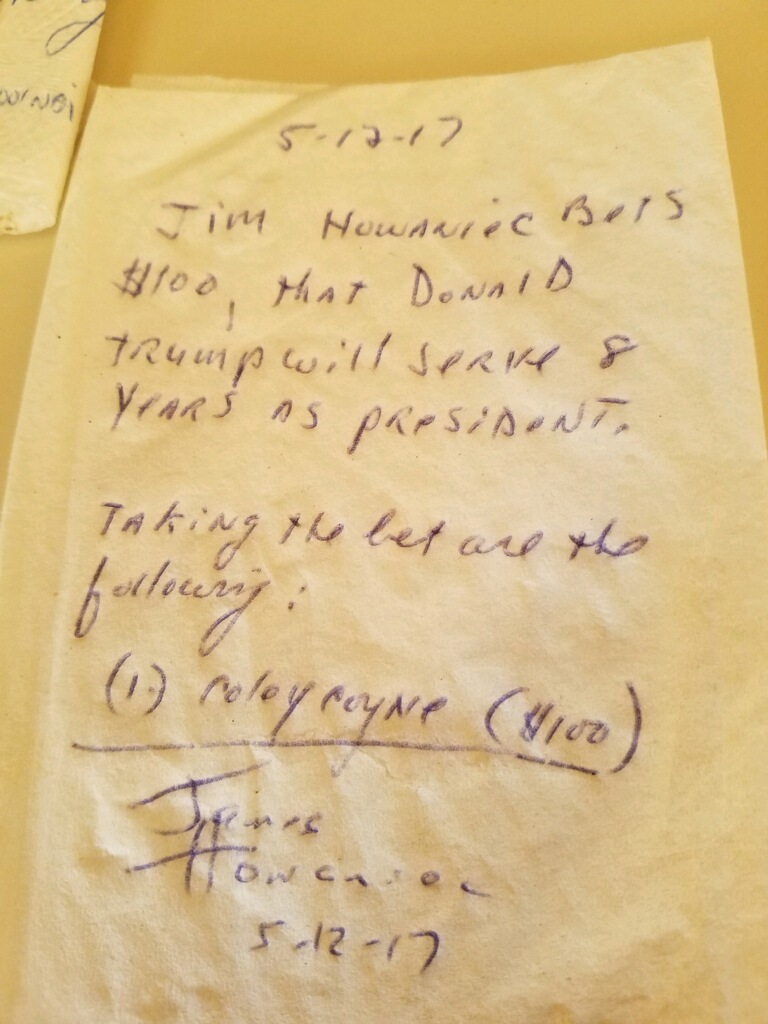 5-12-17
Jim Howaniec Bets
$100, that Donald
Trump will serve 8
years as president.
Taking the bet are the
following:
(1.) Coyne ($100)
James
Howaniec
5-12-17